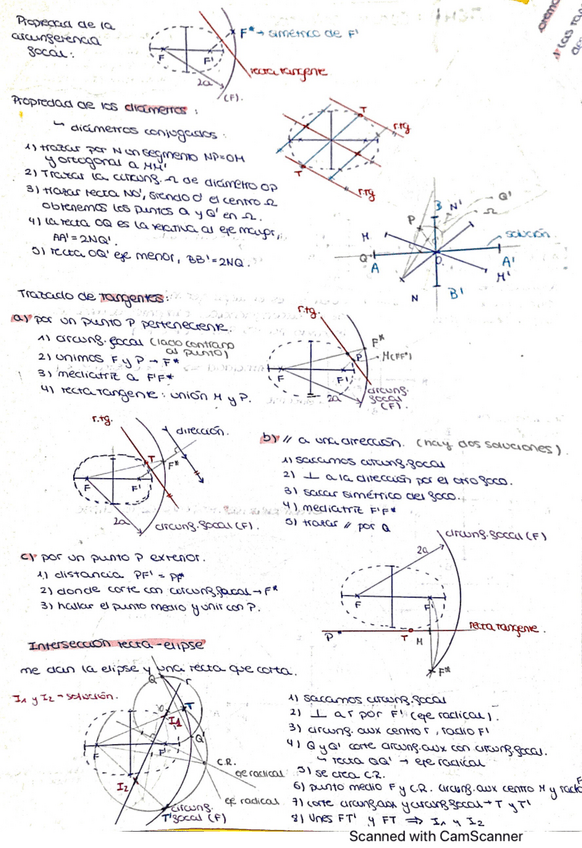 Propiedad de la
circunferencia
focal:
F* → simétrico de F'
recta tangente
F
F'
2a
(F).
Propiedad de los diámetros:
↳ diámetros conjugados:
1) trazar por N un segmento NP=OM
y ortogonal a MM'
2) Trazar la circunf. Ω de diámetro OP
3) trazar recta NO', siendo O' el centro Ω
obtenemos los puntos Q y Q' en Ω.
4) la recta OQ es la relativa al eje mayor,
AA' = 2NQ'.
5) recta OQ' eje menor, BB' = 2NQ.
T
r.tg
T
r.tg
Q'
B
N'
Ω
P
M
solución
Q
A
O
A'
M'
N
B'
Trazado de tangentes:
a) por un punto P perteneciente.
1) circunf. focal (lado contrario
al punto)
2) unimos F y P → F*
3) mediatriz a F'F*
4) recta tangente: unión M y P.
r.tg.
F*
P
M(FF*)
F
F'
2a
circunf.
focal
(F).
r.tg.
dirección.
T
F*
F
F'
2a
circunf. focal (F).
b) // a una dirección. (hay dos soluciones).
1) sacamos circunf. focal
2) ⊥ a la dirección por el otro foco.
3) sacar simétrico del foco.
4) mediatriz F'F*
5) trazar // por a
c) por un punto P exterior.
1) distancia PF' = PF*
2) donde corte con circunf. focal → F*
3) hallar el punto medio y unir con P.
circunf. focal (F)
2a
F
F'
recta tangente.
P
T
M
F*
Intersección recta-elipse
me dan la elipse y una recta que corta.
I₁ y I₂ → solución.
Q
r
T
I₁
Q'
F
F'
C.R.
eje radical
I₂
eje radical
circunf.
T' focal (F)
1) sacamos circunf. focal
2) ⊥ a r por F' (eje radical).
3) circunf. aux centro r, radio F'
4) Q y Q' corte circunf. aux con circunf. focal.
↳ recta QQ' → eje radical
5) se crea C.R.
6) punto medio F y C.R. circunf. aux centro M y radio F
7) corte circunf. aux y circunf. focal → T y T'
8) Unes FT' y FT ⇒ I₁ y I₂
Scanned with CamScanner